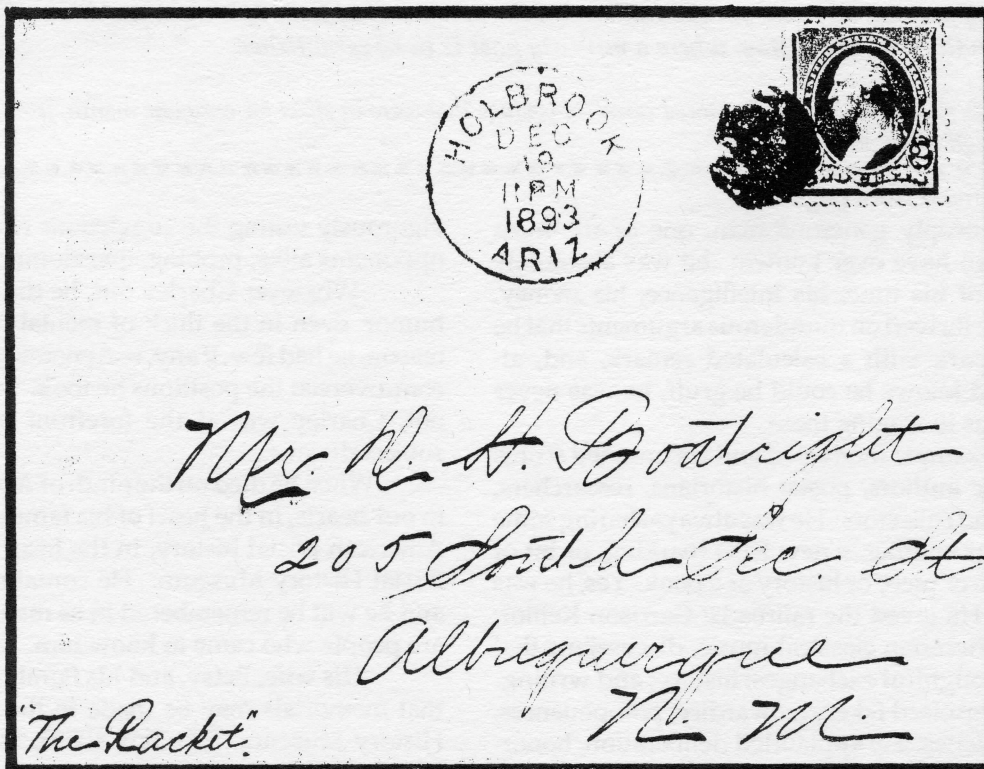 HOLBROOK
DEC
19
11 PM
1893
ARIZ.
Mr. D. H. Boatright
205 South Sec St
Albuquerque
N. M.
"The Racket".